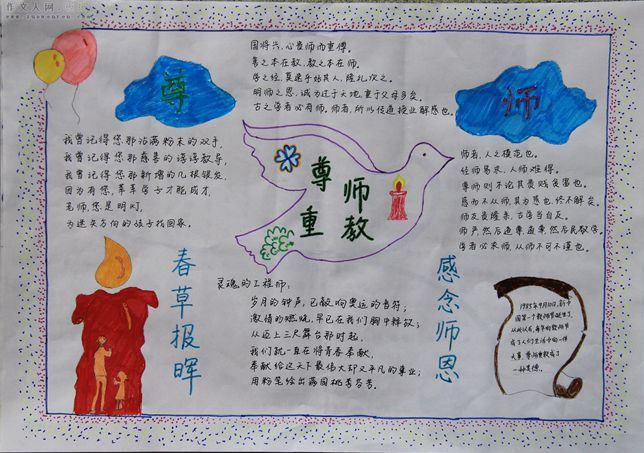 作文人网
尊
师
国将兴,心贵师而重傅。
善之本在教,教之本在师。
学之经,莫速乎好其人,隆礼次之。
明师之恩,诚为过于天地,重于父母多矣。
古之学者必有师。师者,所以传道授业解惑也。
我曾记得您那沾满粉末的双手,
我曾记得您那慈善的谆谆教导,
我曾记得您那新增的几根银发,
因为有您,莘莘学子才能成才,
老师,您是明灯,
为迷失方向的孩子找回家。
尊师
重教
师者,人之模范也。
经师易求,人师难得。
尊师则不论其贵贱贫富也。
惑而不从师,其为惑也,终不解矣。
师友贵臻亲,古学当自反。
师严然后道尊,道尊然后民敬学。
学者必求师,从师不可不谨也。
春草报晖
灵魂的工程师:
岁月的钟声,已敲响奥运的音符;
激情的燃烧,早已在我们胸中释放;
从迈上三尺舞台那时起,
我们就一直在将青春奉献,
奉献给这天下最伟大却又平凡的事业;
用粉笔绘出满园桃李芬芳。
感念师恩
1985年9月10日,新中
国第一个教师节诞生了,
从此以后,每年的教师节
成了人们生活中的一件
大事,尊师重教成了
一种美德。